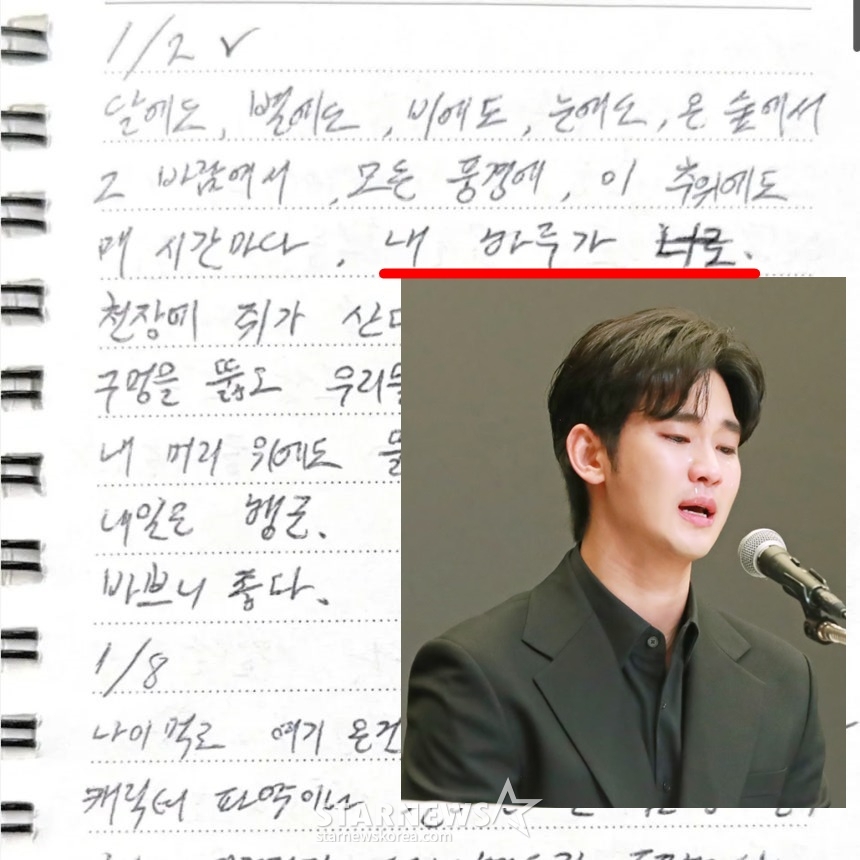 1/2 ✓
달에도, 별에도, 비에도, 눈에도, 온 숲에서
그 바람에서, 모든 풍경에, 이 추위에도
매 시간마다, 내 하루가 너로.
천장에 쥐가 산다
구멍을 뚫고 우리
내 머리 위에도
내일은 행군.
바쁘니 좋다.
1/8
나이먹고 여기 온건
캐릭터 파악이나
STARNEWS
starnewskorea.com